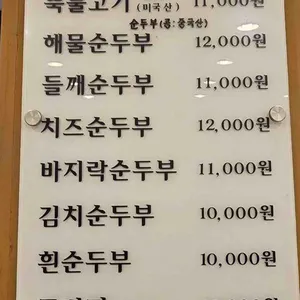 뚝불고기 (미국산) 11,000원
순두부(콩:중국산)
해물순두부 12,000원
들깨순두부 11,000원
치즈순두부 12,000원
바지락순두부 11,000원
김치순두부 10,000원
흰순두부 10,000원